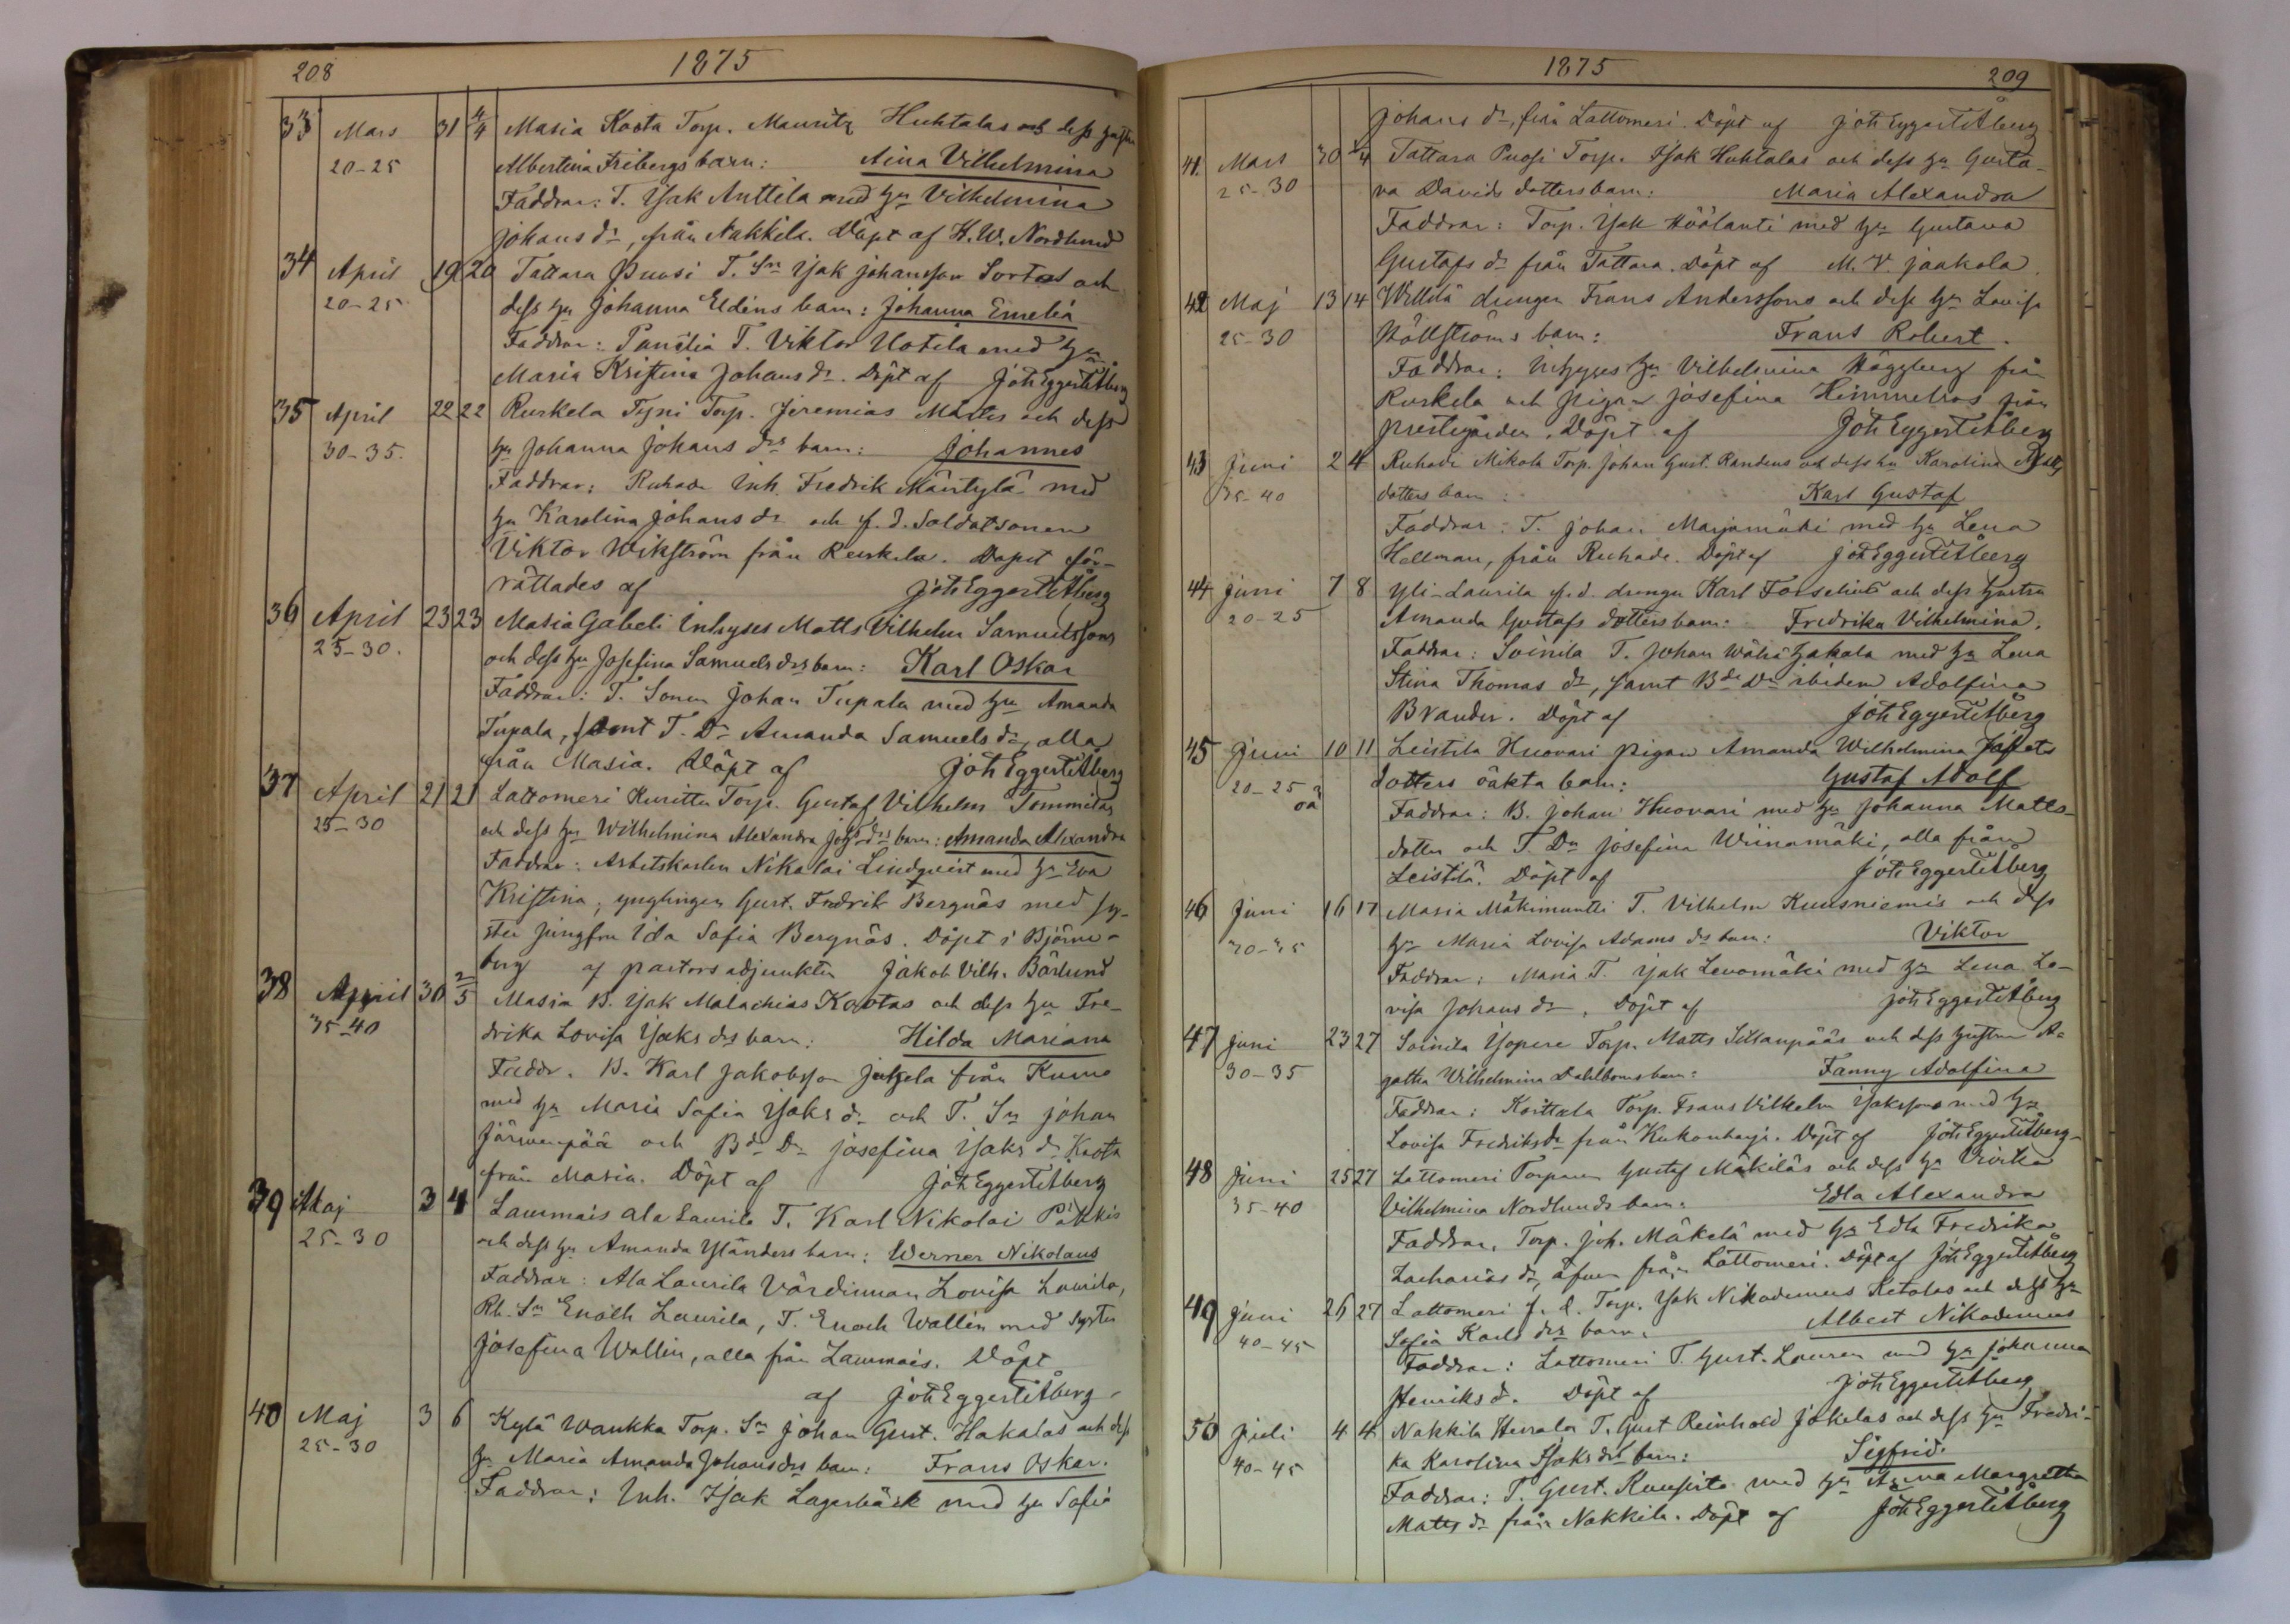 208 1875
33 Mars 31 4/4 Masia Kosta Torp. Mauritz Huhtalas och dess hustru
20-25 Albertina Fribergs barn: Aina Vilhelmina
Faddrar: T. Isak Anttila med hu Vilhelmina
Johans dr, från Nakkila. Döpt af K. W. Nordlund
34 April 19 20 Tattara Puosi T. Sn Isak Johansson Sortas och
20-25 dess hu Johanna Eldéns barn: Johanna Emelia
Faddrar: Panelia T. Viktor Uotila med hu
Maria Kristina Johans dr. Döpt af Joh Eggert Åberg
35 April 22 22 Ruskela Tyni Torp. Jeremias Mattes och dess
30-35. hu Johanna Johans drs barn: Johannes
Faddrar: Ruhade Inh. Fredrik Mäntylä med
hu Karolina Johans dr och f. d. Soldatsonen
Viktor Wikström från Ruskela. Dopet för-
rättades af Joh Eggert Åberg
36 April 23 23 Masia Gabeli Inhyses Matts Vilhelm Samuelssons
25-30. och dess hu Josefina Samuels drs barn: Karl Oskar
Faddrar: T. Sonen Johan Tupala med hu Amanda
Tupala, samt T. Dr Amanda Samuels dr, alla
från Masia. Döpt af Joh Eggert Åberg
37 April 21 21 Lattomeri Kuritta Torp. Gustaf Vilhelm Tommilas
25-30 och dess hu Wilhelmina Alexandra drs barn: Amanda Alexandra
Faddrar: Arbetskarlen Nikolai Lindqvist med hu Eva
Kristina, ynglingen Gust. Fredrik Bergnäs med sy-
ster jungfru Ida Sofia Bergnäs. Döpt i Björne-
borg af pastorsadjunkten Jakob Vilh. Bärlund
38 April 30 2/5 Masia B. Isak Malachias Kaotas och dess hu Fre-
35-40 drika Lovisa Isaks drs barn: Hilda Mariana
Faddr. B. Karl Jakobsson Jutjela från Kumo
med hu Maria Sofia Isaks dr och T. Sn Johan
Järvenpää och Bde Dr Josefina Isaks dr Kaota
från Masia. Döpt af Joh Eggert Åberg
39 Maj 3 4 Lammais Ala Laurila T. Karl Nikolai Päkkis
25-30 och dess hu Amanda Yländers barn: Werner Nikolaus
Faddrar: Ala Laurila Värdinnan Lovisa Laurila,
Rb. Sn Enoch Laurila, T. Enoch Wallin med syster
Josefina Wallin, alla från Lammais. Döpt
af Joh Eggert Åberg.
40 Maj 3 6 Kylä Waukka Torp. Sn Johan Gust. Hakalas och dess
25-30 hu Maria Amanda Johans drs barn: Frans Oskar.
Faddrar: Inh. Isak Lagerbäck med hu Sofia
1875 209
Johans dr, från Lattomeri. Döpt af Joh Eggert Åberg
41. Mars 30 /4 Tattara Puosi Torp. Isak Huhtalas och dess hu Gusta-
25-30 va Davids dotters barn: Maria Alexandra
Faddrar: Torp. Isak Höölanti med hu Gustava
Gustafs dr från Tattara. Döpt af M. V. Jaakola.
42 Maj 13 14 Willilä drengen Frans Anderssons och dess hu Lovisa
25-30 Hällströms barn: Frans Robert.
Faddrar: Inhyses hu Vilhelmina Häggberg från
Ruskela och pigan Josefina Himmelros från
prestgården. Döpt af Joh Eggert Åberg
43 Juni 2 4 Ruhade Mikola Torp. Johan Gust. Randens och dess hu Karolina Matts
35-40 dotters barn: Karl Gustaf
Faddrar: T. Johan Marjamäki med hu Lena
Hellman, från Ruhade. Döpt af Joh Eggert Åberg
44 Juni 7 8 Yli-Laurila f. d. drengen Karl Forselius och dess hustru
20-25 Amanda Gustafs dotters barn: Fredrika Vilhelmina.
Faddrar: Soinila T. Johan Wähätjakala med hu Lena
Stina Thomas dr, samt Bde Dr ibidem Adolfina
Brander. Döpt af Joh Eggert Åberg
45 Juni 10 11 Leistilä Huovari pigan Amanda Wilhelmina Jafets
20-25 dotters oäkta barn: Gustaf Adolf
oä Faddrar: B. Johan Huovari med hu Johanna Matts-
dotter och T. Dr Josefina Wiinamäki, alla från
Leistilä. Döpt af Joh Eggert Åberg
46 Juni 16 17 Masia Mäkimuntti T. Vilhelm Kuusniemis och dess
30-35 hu Maria Lovisa Adams drs barn: Viktor
Faddrar: Masia T. Isak Levomäki med hu Lena Lo-
visa Johans dr. Döpt af Joh Eggert Åberg
47 Juni 23 27 Soinila Yopere Torp. Matts Sillanpääs och dess hustru A-
30-35 gatha Vilhelmina Dahlboms barn: Fanny Adolfina
Faddrar: Koittala Torp. Frans Vilhelm Isaksson med hu
Lovisa Fredriks dr från Kukonharja. Döpt af Joh Eggert Åberg
48 Juni 25 27 Lattomeri Torparen Gustaf Mäkiläs och dess hu Ulrika
35-40 Vilhelmina Nordlunds barn: Edla Alexandra
Faddrar, Torp. Joh. Mäkelä med hu Edla Fredrika
Zacharias dr, äfven från Lattomeri. Döpt af Joh Eggert Åberg
49 Juni 26 27 Lattomeri f. d. Torp. Isak Nikodemus Ketolas och dess hu
40-45 Sofia Karls drs barn: Albert Nikodemus
Faddrar: Lattomeri T. Gust. Lauren med hu Johanna
Henriks dr. Döpt af Joh Eggert Åberg
50 Juli 4 4 Nakkila Herrala T. Gust Reinhold Jokelas och dess hu Fredri-
40-45 ka Karolina Isaks drs barn: Sigfrid.
Faddrar: T. Gust. Ruusista med hu Anna Margretha
Matts dr från Nakkila. Döpt af Joh Eggert Åberg